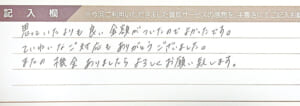 記入欄
思っていたよりも良い金額がついたのでよかったです。
ていねいなご対応もありがとうございました。
またの機会ありましたらよろしくお願い致します。